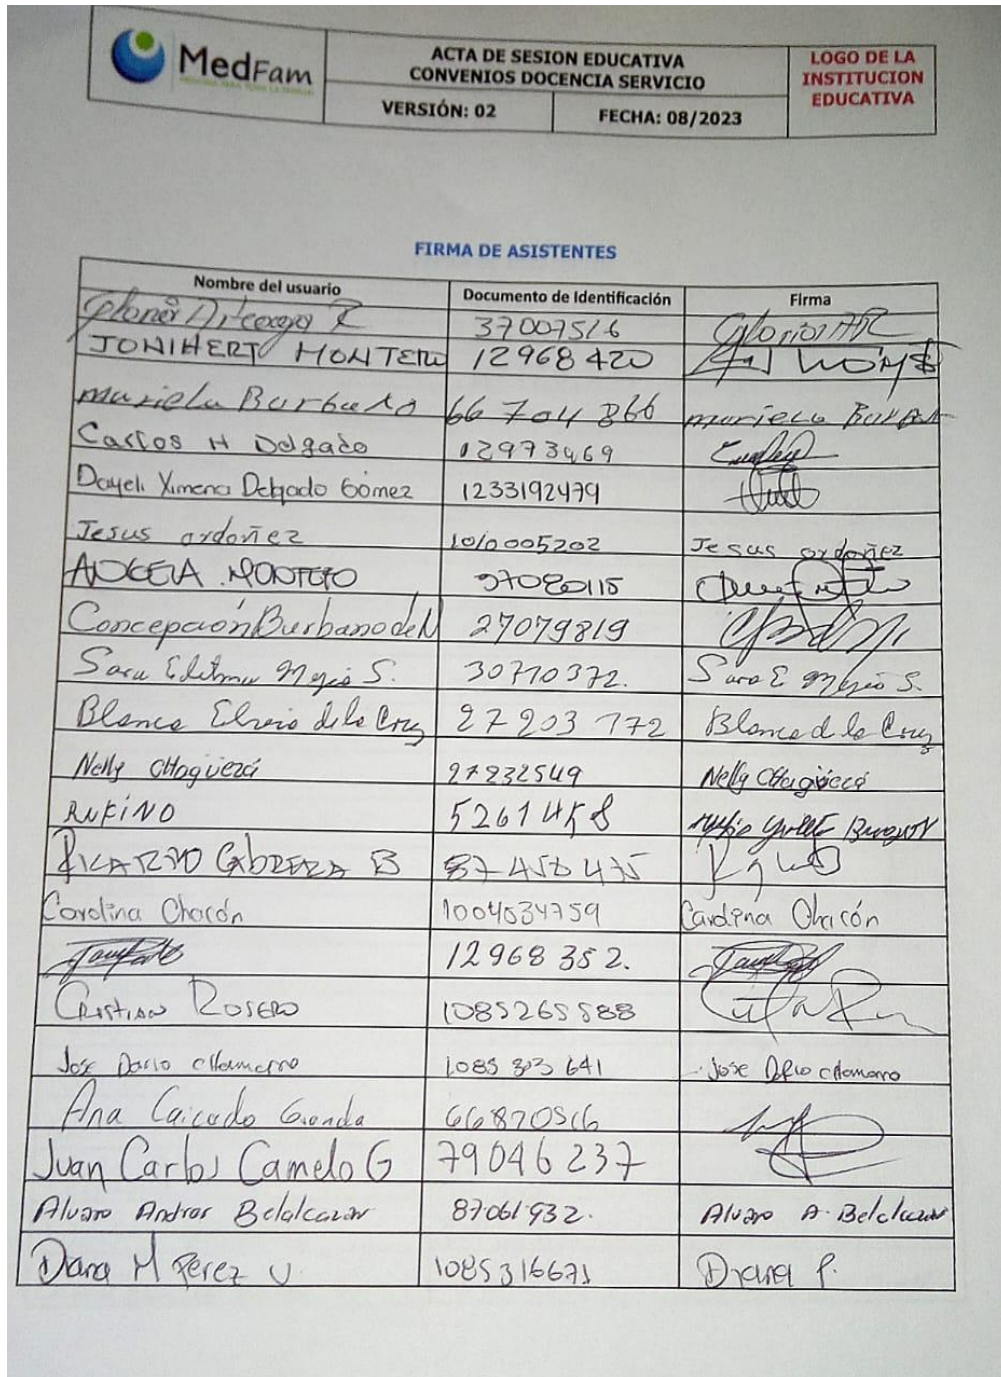 MedFam
ACTA DE SESION EDUCATIVA
CONVENIOS DOCENCIA SERVICIO
VERSIÓN: 02 FECHA: 08/2023
LOGO DE LA
INSTITUCION
EDUCATIVA
FIRMA DE ASISTENTES
Nombre del usuario Documento de Identificación Firma
Arteaga R 37007516
JONIHERT MONTERO 12968420
mariela Burbano 66 704 866 mariela
Carlos H Delgado 12973469
Dayeli Ximena Delgado Gómez 1233192479
Jesus ordoñez 1010005202 Jesus ordoñez
ANGELA MONTERO 37080115
Concepción Burbano de M 27079819
Sara Mejia S. 30710372. Sara E Mejia S.
Blanca Elvira de la Cruz 27203 772 Blanca de la Cruz
Nelly 27232549 Nelly
RUFINO 5261458
RICARDO CABRERA B
Carolina Chacón 1004634759 Carolina Chacón
12968 352.
CRISTIAN ROSERO 1085265588
Jose Dario 1085 303 641 Jose
Ana Caicedo 66870516
Juan Carlos Camelo G 79046237
Alvaro Andres Belalcazar 87061932. Alvaro A. Belalcazar
Diana M Perez U 1085316671 Diana P.